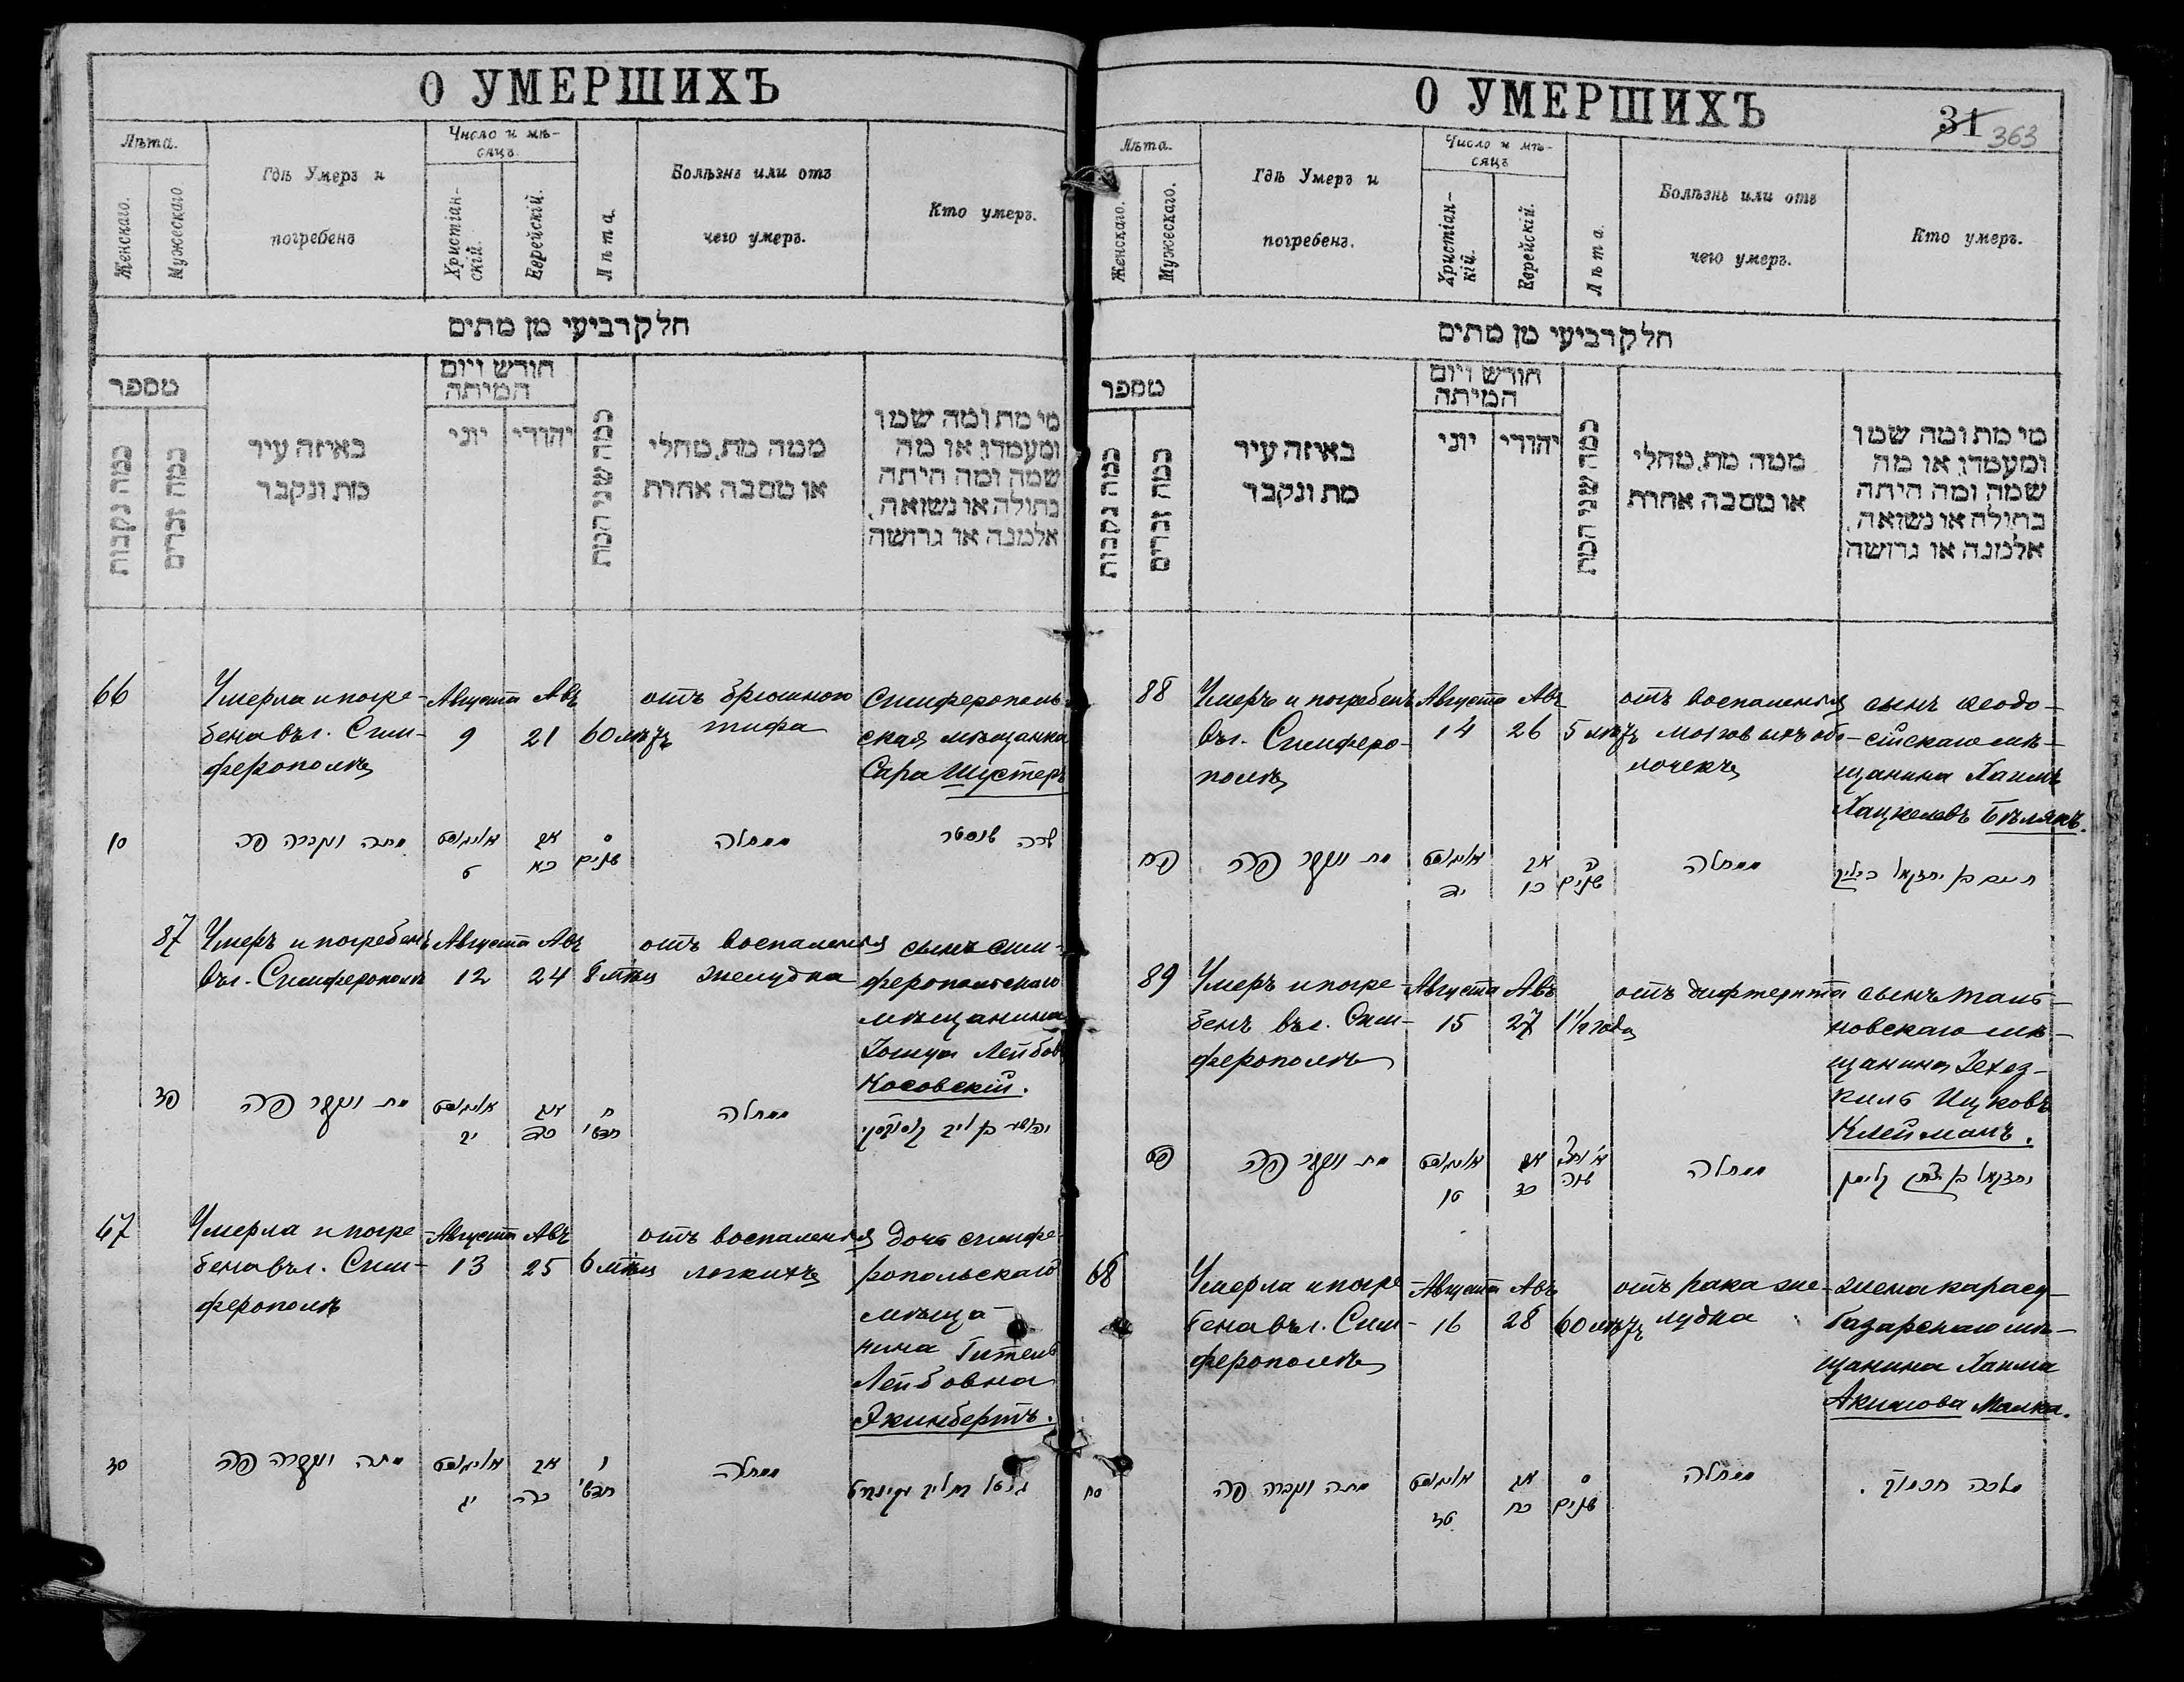 О УМЕРШИХЪ
Лѣта.
Женскаго.
Мужескаго
Гдѣ Умеръ и
погребенъ
Число и мѣ-
сяцъ.
Христіан-
скій.
Еврейскій.
Лѣта.
Болѣзнь или отъ
чего умеръ.
Кто умеръ.
חלק רביעי מן מתים
מספר
כמה נקבות
כמה זכרים
באיזה עיר
מת ונקבר
חודש ויום
המיתה
יוני
יהודי
כמה שני המת
ממה מת, מחלי
או מסבה אחרת
מי מת ומה שמו
ומעמדו, או מה
שמה ומה היתה
בתולה או נשואה,
אלמנה או גרושה
66
Умерла и погре-
бена въ г. Сим-
ферополѣ
Августа 9
Авъ 21
60 лѣтъ
отъ брюшного
тифа
Симферополь-
ская мѣщанка
Сара Шустеръ
מתה ונקברה פה
אויגוסט
ט
אב
כא
ס
שנים
ממחלה
שרה שוסטר
87
Умеръ и погребенъ
въ г. Симферополѣ
Августа 12
Авъ 24
8 мѣсц
отъ воспаленія
желудка
сынъ сим-
феропольскаго
мѣщанина
Іошуа Лейбовъ
Косовскій.
פז
מת ונקבר פה
אויגוסט
יב
אב
כד
ח
חדשי
ממחלה
67
Умерла и погре-
бена въ г. Сим-
ферополѣ
Августа 13
Авъ 25
6 мѣсц
отъ воспаленія
легкихъ
дочь симфе-
ропольскаго
мѣща-
нина Гитель
Лейбовна
סז
מתה ונקברה פה
אויגוסט
יג
אב
כה
ו
חדשי
ממחלה
О УМЕРШИХЪ
31 363
Лѣта.
Женскаго.
Мужескаго.
Гдѣ Умеръ и
погребенъ.
Число и мѣ-
сяцъ
Христіан-
кій.
Еврейскій.
Лѣта.
Болѣзнь или отъ
чего умеръ.
Кто умеръ.
חלק רביעי מן מתים
מספר
כמה נקבות
כמה זכרים
באיזה עיר
מת ונקבר
חודש ויום
המיתה
יוני
יהודי
כמה שני המת
ממה מת, מחלי
או מסבה אחרת
מי מת ומה שמו
ומעמדו, או מה
שמה ומה היתה
בתולה או נשואה,
אלמנה או גרושה
88
Умеръ и погребенъ
въ г. Симферо-
полѣ
Августа 14
Авъ 26
5 лѣтъ
отъ воспаленія
мозговыхъ обо-
лочекъ
сынъ Ѳеодо-
сійскаго мѣ-
щанина Хаимъ
Хацкелевъ Бѣлякъ.
פח
מת ונקבר פה
אויגוסט
יד
אב
כו
ה
שנים
ממחלה
חיים בן יחזקאל ביליק
89
Умеръ и погре-
бенъ въ г. Сим-
ферополѣ
Августа 15
Авъ 27
1½ года
отъ дифтерита
сынъ таль-
новскаго мѣ-
щанина Іехез-
киль Ицковъ
Клейманъ.
פט
מת ונקבר פה
אויגוסט
טו
אב
כז
שנה
ממחלה
יחזקאל בן יצחק קליימן
68
Умерла и погре-
бена въ г. Сим-
ферополѣ
Августа 16
Авъ 28
60 лѣтъ
отъ рака же-
лудка
жена карасу-
базарскаго мѣ-
щанина Хаима
Акимова Малка.
סח
מתה ונקברה פה
אויגוסט
טז
אב
כח
ס
שנים
ממחלה